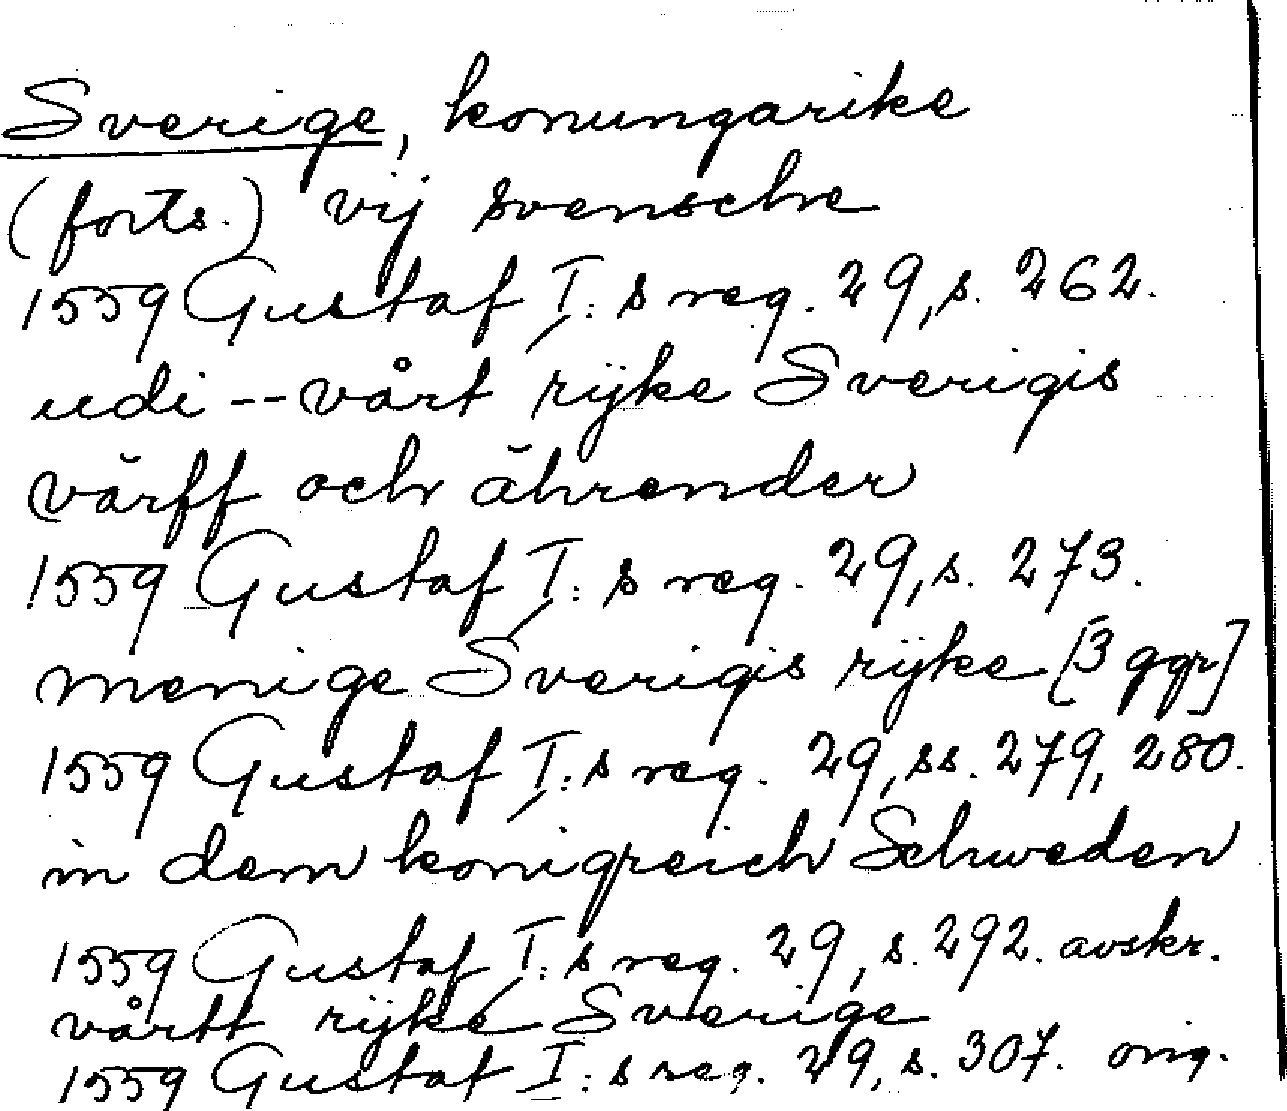 Sverige, konungarike
(forts.) vij svensche
1559 Gustaf I:s reg. 29, s. 262.
udi -- vårt rijke Sverigis
värff och ährender
1559 Gustaf I:s reg. 29, s. 273.
menige Sverigis rijke [3 ggr]
1559 Gustaf I:s reg. 29, ss. 279, 280.
in dem konigreich Schweden
1559 Gustaf I:s reg. 29, s. 292. avskr.
vårtt rijke Sverige
1559 Gustaf I:s reg. 29, s. 307. orig.